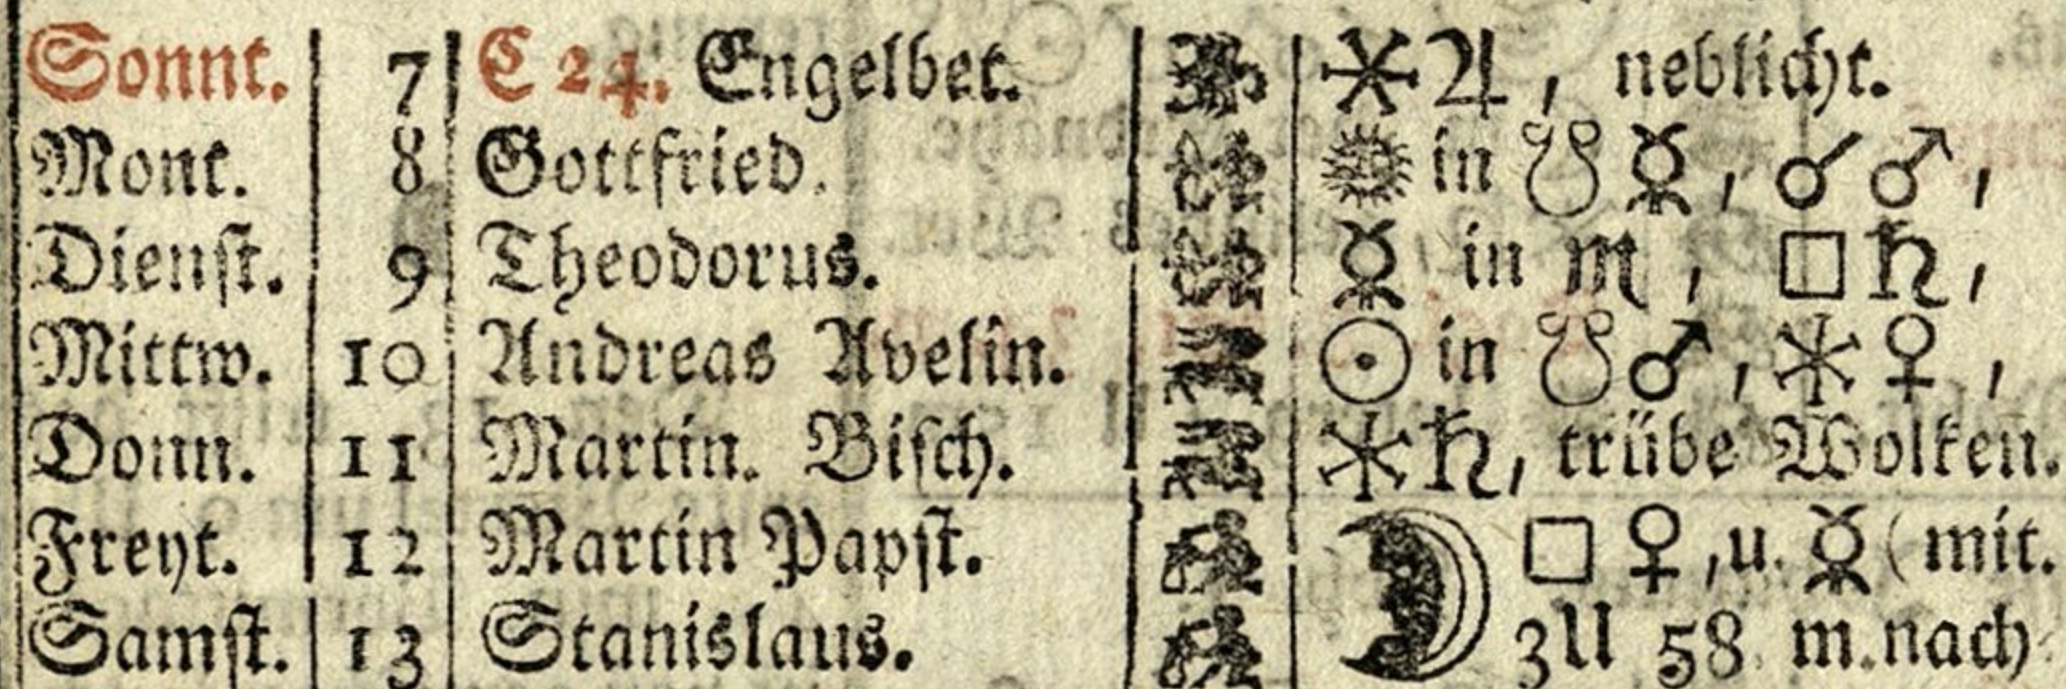 Sonnt. 7 C 24. Engelbet. ⚹♃, neblicht.
Mont. 8 Gottfried. ☉ in ☋☿, ☌♂,
Dienst. 9 Theodorus. ☿ in ♏, □♄,
Mittw. 10 Andreas Avelin. ☉ in ☋♂, ⚹♀,
Donn. 11 Martin. Bisch. ⚹♄, trübe Wolken.
Freyt. 12 Martin Papst. ☽ □ ♀, u. ☿ (mit.
Samst. 13 Stanislaus. 3U 58 m. nach